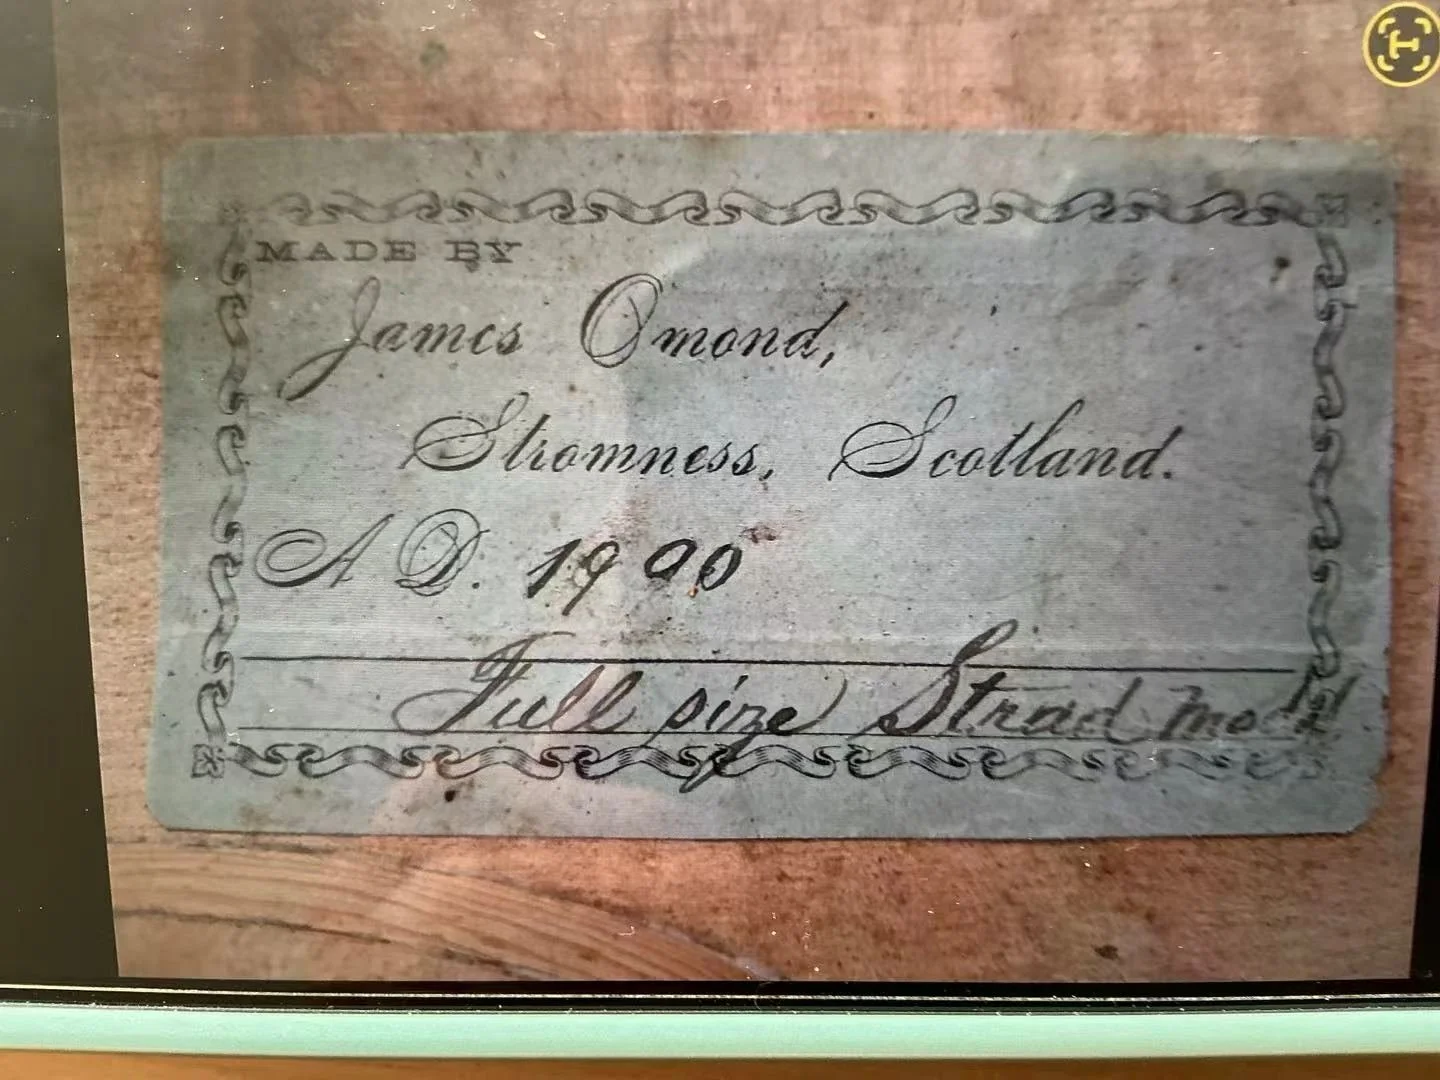 MADE BY
James Omond,
Stromness, Scotland.
A D. 1900
Full size Strad model